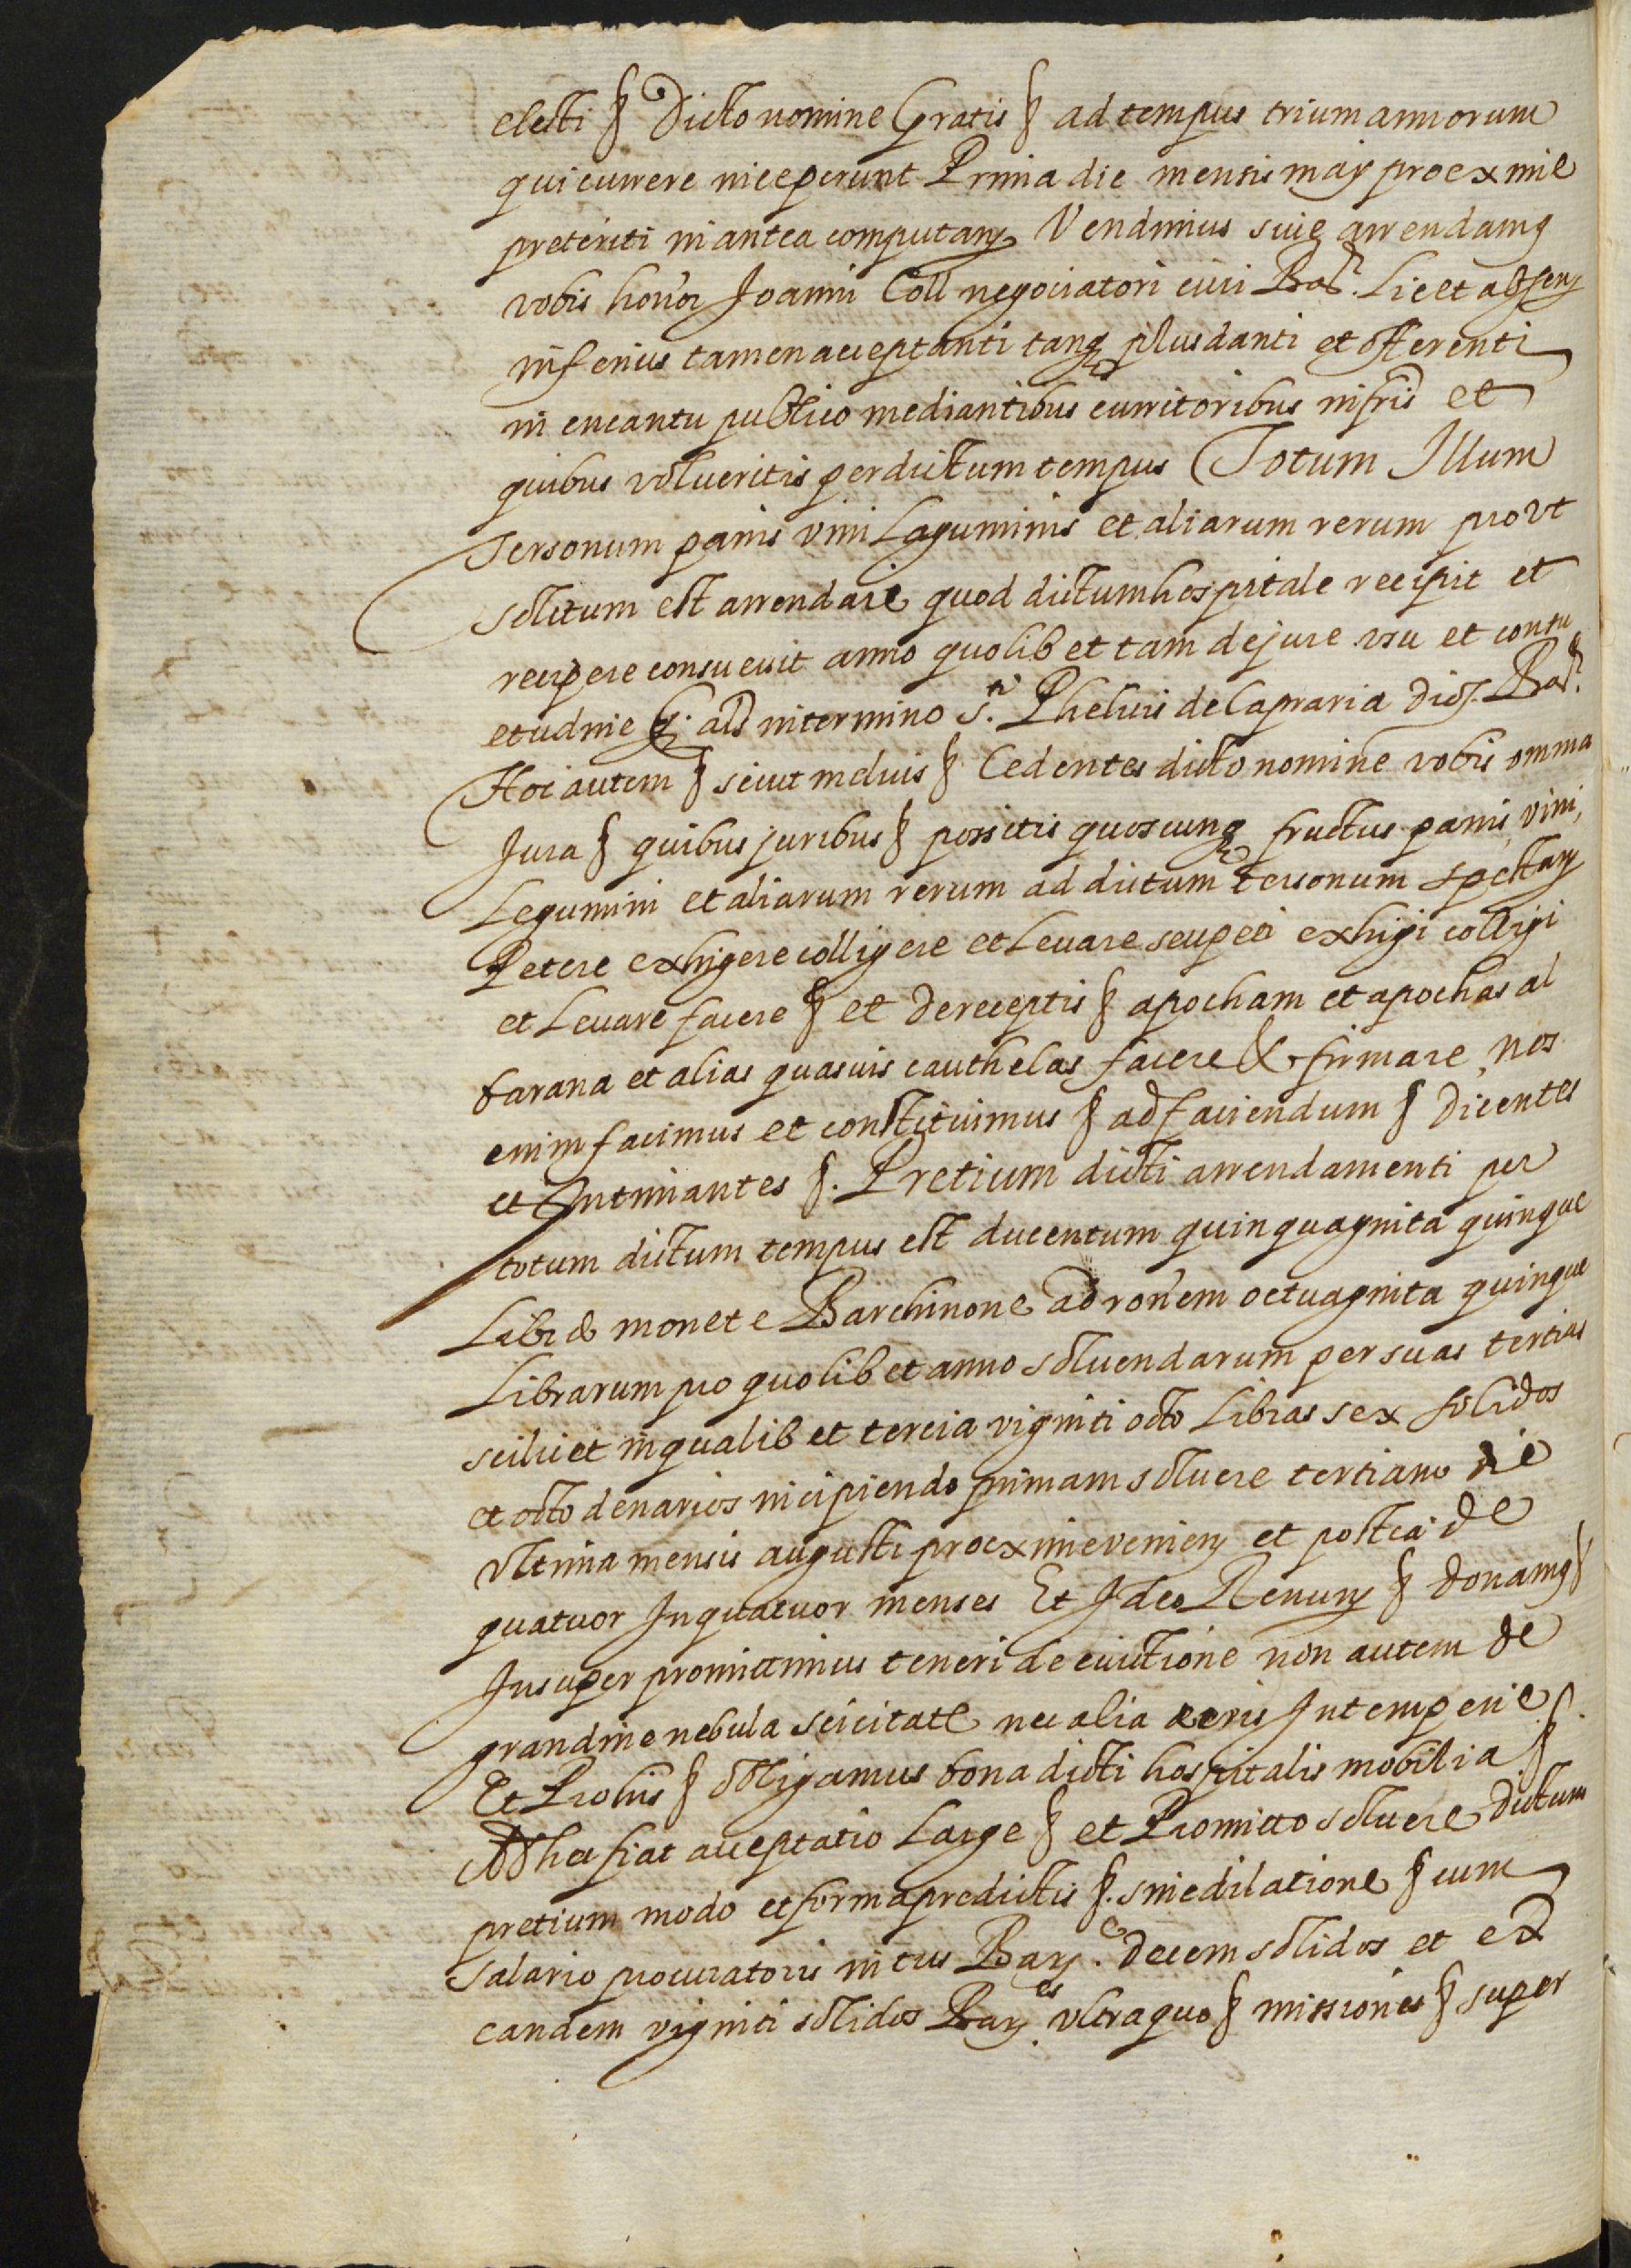 electi § Dicto nomine Gratis § ad tempus trium annorum
qui currere inceperunt Prima die mensis maij proxime
preteriti in antea computan̄ Vendimus siue arrendam9
vobis honor Joanni Coll negociatori ciui Bar̄. Licet absen̄
inferius tamen acceptanti tanq̄ plus danti et offerenti
in encantu publico mediantibus curritoribus infr̄is et
quibus volueritis per dictum tempus Totum Illum
Tersonum panis vini Leguminis et aliarum rerum prout
solitum est arrendare quod dictum hospitale recipit et
recipere consueuit anno quolibet tam de jure vsu et consu
etudine q̄ als in termino s.ti Pheliuis de Capraria dioc̄. Bar̄.
Hoc autem § sicut melius § Cedentes dicto nomine vobis omnia
Jura § quibus juribus § possitis quoscunq̄ fructus panis vini,
Legumini et aliarum rerum ad dictum tersonum spectan̄
Petere exhigere colligere et Leuare seu peti exhigi colligi
et Leuare facere § et de receptis § apocham et apochas al
barana et alias quasuis cauthelas facere & firmare, nos
enim facimus et constituimus § ad faciendum § Dicentes
et Intimantes §. Pretium dicti arrendamenti per
totum dictum tempus est ducentum quinquaginta quinque
Libre monete Barchinone ad ron̄em octuaginta quinque
Librarum pro quolibet anno soluendarum per suas tertias
scilicet in qualibet tercia viginti octo Libras sex solidos
et octo denarios incipiendo primam soluere tertiam die
vltima mensis augusti proxime venien̄ et postea de
quatuor In quatuor menses Et Ideo Renun̄ § donam9 §
Insuper promittimus teneri de euictione non autem de
grandine nebula siccitate nec alia aeris Intemperie §.
Et Pro his § obligamus bona dicti hospitalis mobilia §
Ad hec fiat acceptatio Large § et Promitto soluere dictum
pretium modo et forma predictis §. sine dilatione § cum
salario procuratoris intus Barn̄.e decem solidos et extra
eandem viginti solidos Barn̄.es vltra quo § missiones § super